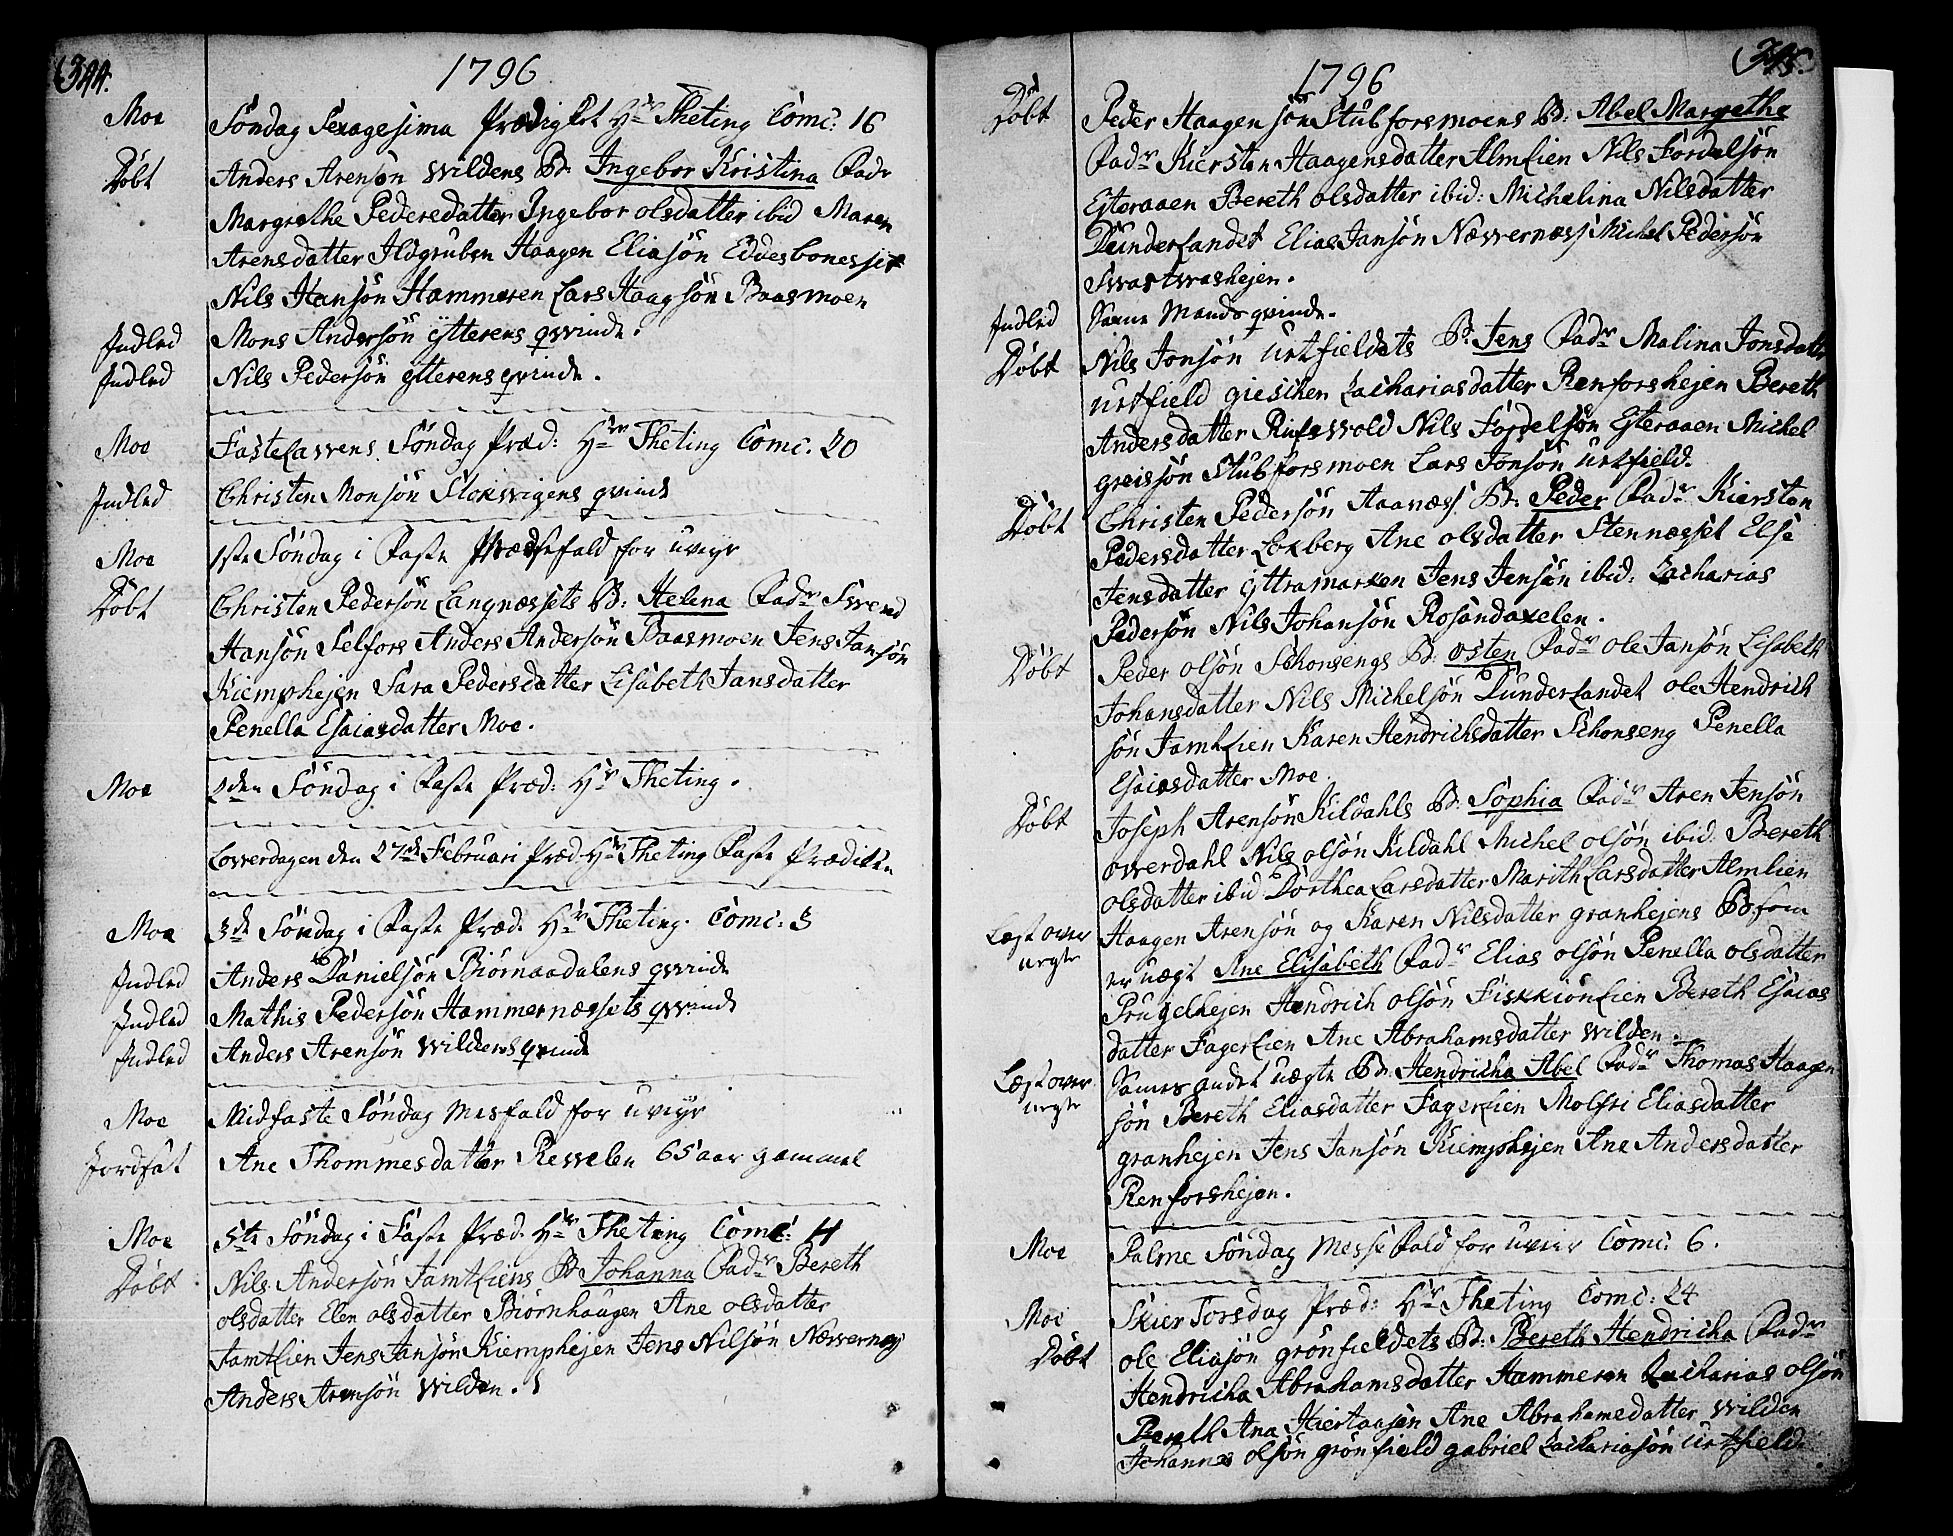 344.
1796
Moe Söndag Sexagesima Prædiket Hr Theting Comc: 16
Döbt Anders Arensön Wildens B: Ingebor Kristina Fadr
Margrethe Pedersdatter Ingebor olsdatter ibid Maren
Arensdatter Ildgruben Haagen Eliasön
Nils Hansön Hammeren Lars Haagsön Baasmoen
Indled Mons Andersön Ytterens qvinde.
Indled Nils Pedersön Ytterens qvinde.
Moe Fastelavens Söndag Præd: Hr Theting Comc. 20
Indled Christen Monsön Slokvigens qvinde
Moe 1ste Söndag i Faste Prædfefald for uveyr
Döbt Christen Pedersön Langnæssets B: Helena Fadr Svend
Hansön Selfors Anders Andersön Baasmoen Jens Jansön
Kiemphejen Sara Pedersdatter Lisabeth Jansdatter
Penella Esaiasdatter Moe.
Moe 2den Söndag i Faste Præd: Hr Theting.
Löverdagen den 27de Februari Præd. Hr Theting Faste Prædiken
Moe 3de Söndag i Faste Præd. Hr Theting. Comc: 3
Indled Anders Danielsön Biörnaadalens qvinde
Indled Mathis Pedersön Hammernæssets qvinde
Indled Anders Arensön Wildens qvinde
Moe Midfaste Söndag Mesfald for uveyr
Jordfæt Ane Thommesdatter Revelen 65 aar gammel
Moe 5te Söndag i Faste Præd. Hr Theting Comc: 4
Döbt Nils Andersön Jamtliens B: Johanna Fadr Bereth
olsdatter Elen olsdatter Biörnhaugen Ane olsdatter
Jamtlien Jens Jansön Kiemphejen Jens Nilsön Næverness
Anders Arensön Wilden.
345.
1796
Döbt Peder Haagensön Stubforsmoens B: Abel Margrethe
Fadr Kiersten Haagensdatter Almlien Nils Fördelsön
Esteraaen Bereth olsdatter ibid: Michelina Nilsdatter
Dunderlandet Elias Jansön Næverness Michel Pedersön
Svartvashejen.
Indled Samme Mands qvinde.
Döbt Nils Jonsön Urtfieldets B: Jens Fadr Malina Jonsdatter
Urtfield giesken Zachariasdatter Renforshejen Bereth
Andersdatter Rufsvold Nils Fördelsön Esteraaen Michel
greissön Stubforsmoen Lars Jonsön Urtfield.
Döbt Christen Pedersön Aanæss B: Peder Fadr Kiersten
Pedersdatter Loxberg Ane olsdatter Stennæsset Else
Jensdatter Yttramarken Jens Jensön ibid: Zacharias
Pedersön Nils Johansön Rosandaxelen.
Döbt Peder olsön Schonsengs B: osten Fadr ole Jansön Lisabeth
Johansdatter Nils Michelsön Dunderlandet ole Hendrich
sön Jamtlien Karen Hendrichsdatter Schonseng Penella
Esaiasdatter Moe.
Döbt Joseph Arensön Kildahls B: Sophia Fadr Aren Jensön
overdahl Nils olsön Kildahl Michel olsön ibid. Bereth
olsdatter ibid Dorthea Larsdatter Marith Larsdatter Almlien
Læst over Haagen Arensön og Karen Nilsdatter granhejens B: som
uegte er uægt Ane Elisabeth Fadr Elias olsön Penella olsdatter
Prugelhejen Hendrich olsön Fiskkiönlien Bereth Esaias
datter Fagerlien Ane Abrahamsdatter Wilden.
Læst over Sammes andet uægte B: Hendricha Abel Fadr Thomas Haagen
uegte sön Bereth Eliasdatter Fagerlien Molfri Eliasdatter
granhejen Jens Jansön Kiemphejen Ane Andersdatter
Renforshejen.
Moe Palme Söndag Messefald for uveir Comc: 6.
Moe Skier Torsdag Præd: Hr Theting Comc: 24
Döbt ole Eliasön grönfieldets B: Bereth Hendricha Fadr
Hendricha Abrahamsdatter Hammeren Zacharias olsön
Bereth Ana Ane Abrahamsdatter Wilden
Johannes olsön grönfield gabriel Zachariasön Urtfield.